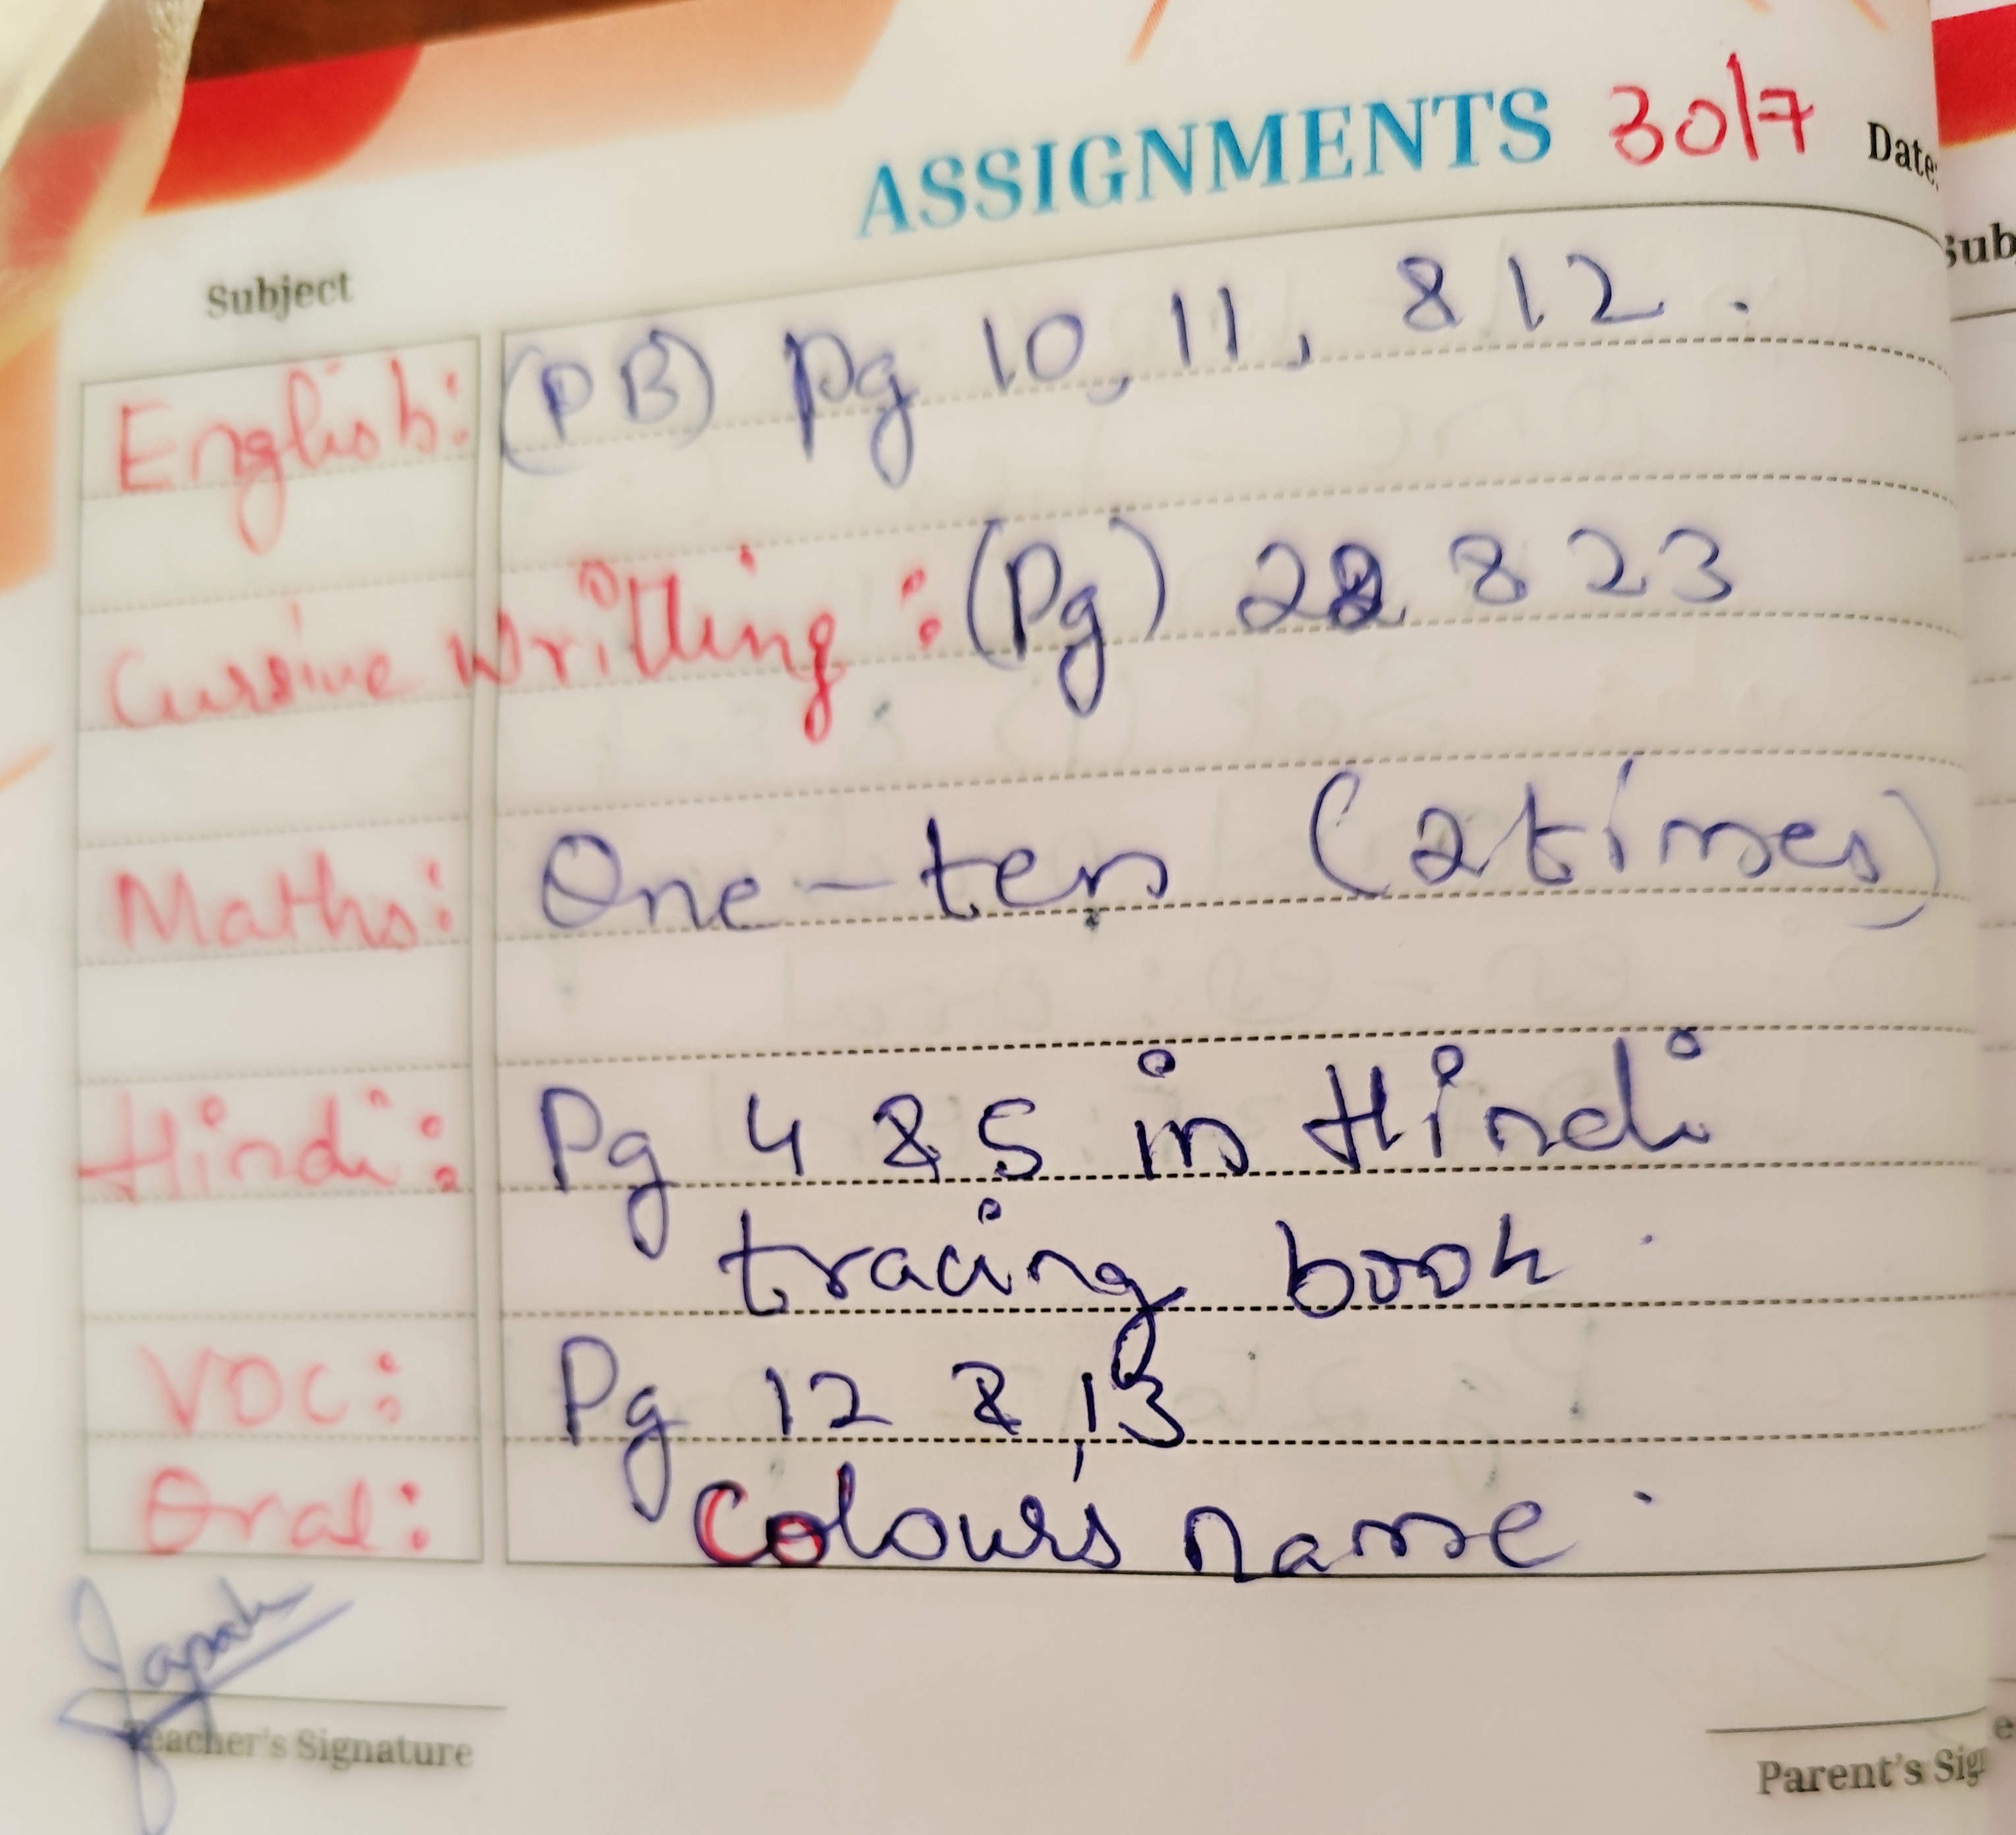 ASSIGNMENTS 30/7 Date:
Subject
English: (PB) Pg 10, 11, & 12.
Cursive Writting : (Pg) 22 & 23
Maths: One-ten (2times)
Hindi: Pg 4 & 5 in Hindi
tracing book.
VOC: Pg 12 & 13
Oral: Colour's name.
Teacher's Signature
Parent's Sig
Sub